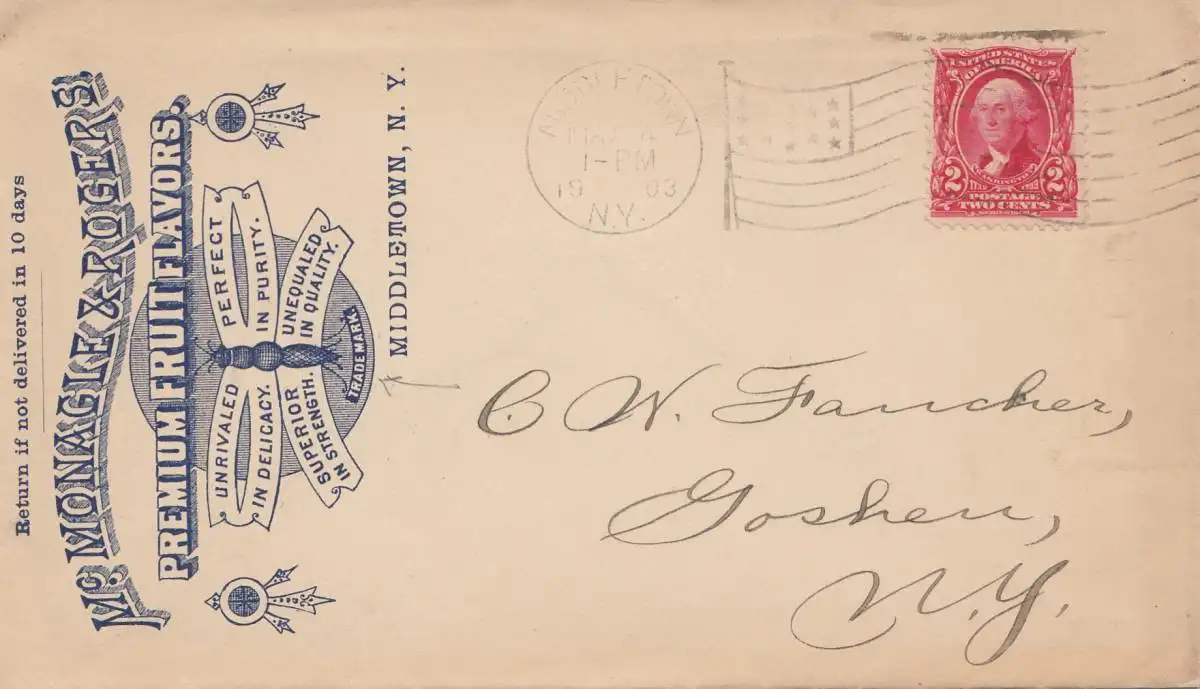 Return if not delivered in 10 days
Mc. MONAGLE & ROGERS'
PREMIUM FRUIT FLAVORS.
PERFECT
IN PURITY.
UNEQUALED
IN QUALITY.
UNRIVALED
IN DELICACY.
SUPERIOR
IN STRENGTH
TRADEMARK.
MIDDLETOWN, N. Y.
MIDDLETOWN
4
1-PM
19 03
N.Y.
UNITED STATES
OF AMERICA
WASHINGTON
2 2
POSTAGE
TWO CENTS
SERIES 1902
C. W. Fancher,
Goshen,
N.Y.